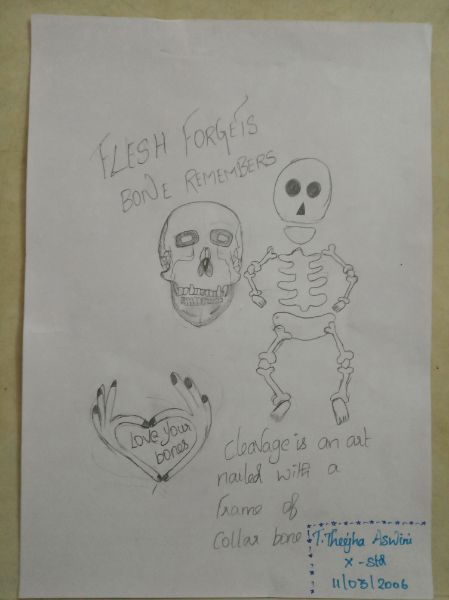 FLESH FORGETS
BONE REMEMBERS
Love your
bones
Cleavage is an art
nailed with a
frame of
collar bone
T. Theejha Aswini
X - std
11/03/2006